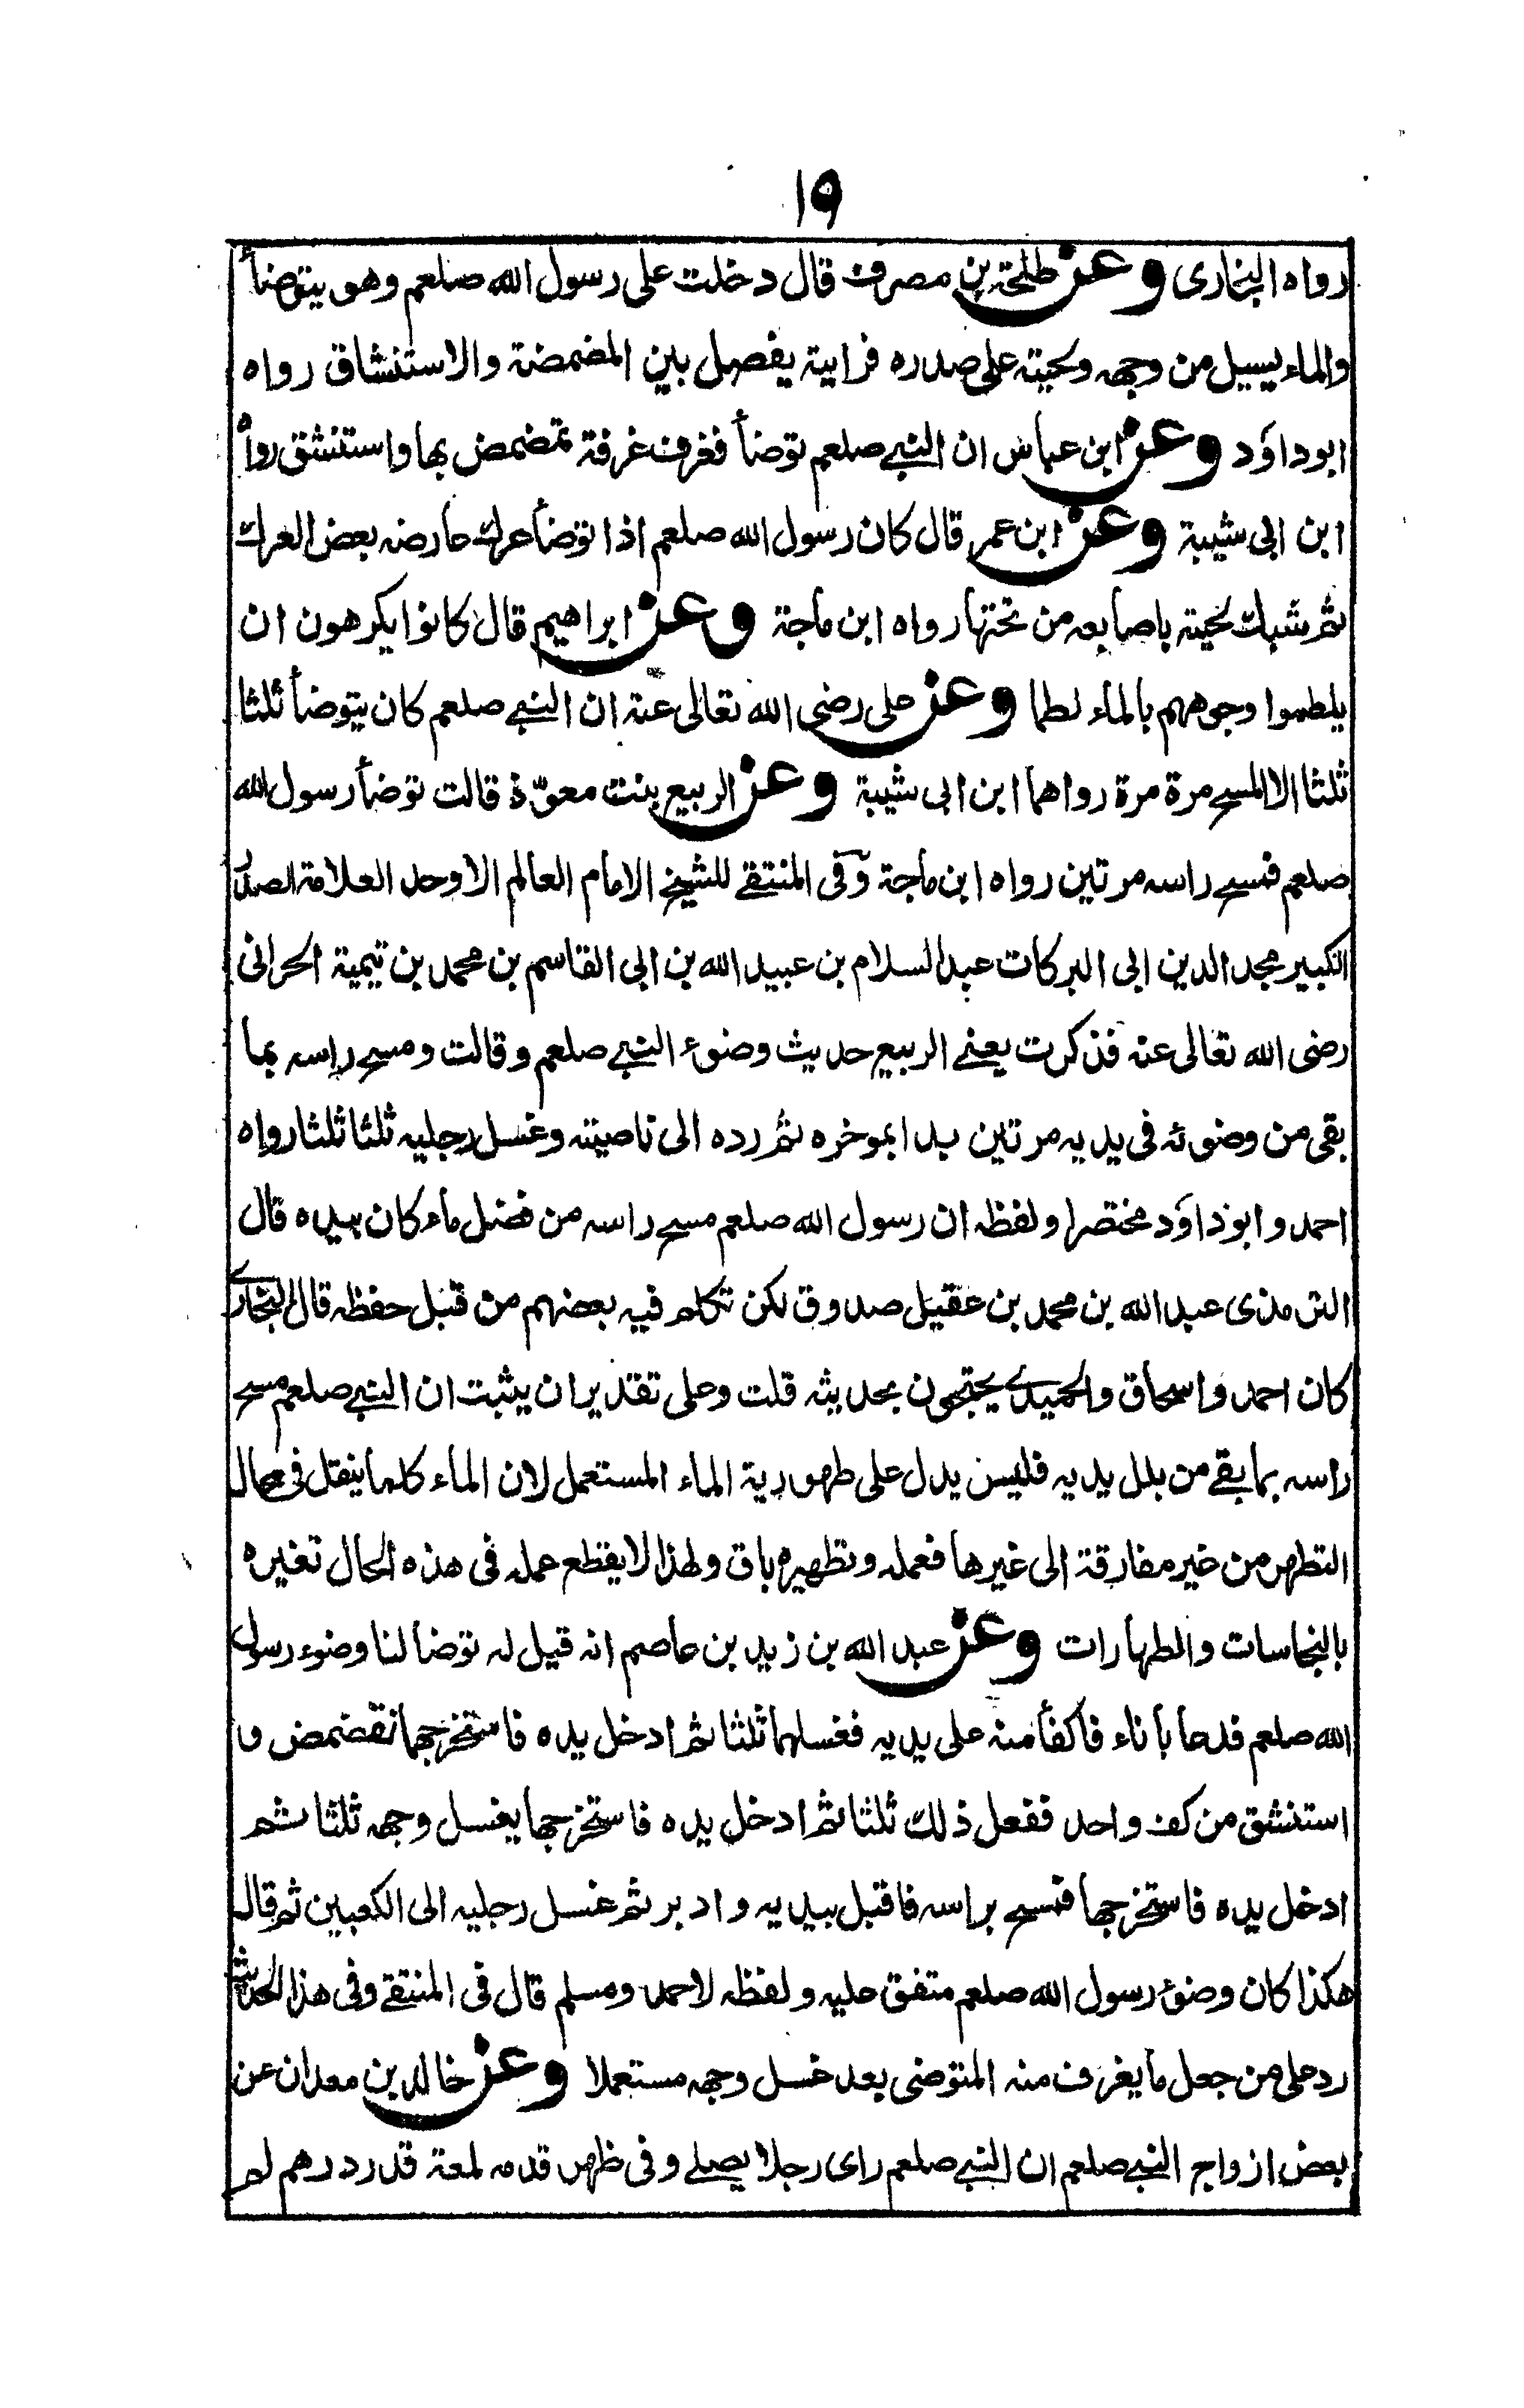 ١٩
رواه البخارى وعن طلحة بن مصرف قال دخلت على رسول الله صلعم وهو يتوضأ
والماء يسيل من وجهه ولحيته على صدره فرايته يفصل بين المضمضة والاستنشاق رواه
ابوداؤد وعن ابن عباس ان النبى صلعم توضأ فغرف غرفة تمضمض بها واستنشق رواه
ابن ابى شيبة وعن ابن عمر قال كان رسول الله صلعم اذا توضأ عرك عارضه بعض العرك
ثم شبك لحيته باصابعه من تحتها رواه ابن ماجة وعن ابراهيم قال كانوا يكرهون ان
يلطموا وجوههم بالماء لطما وعن على رضى الله تعالى عنه ان النبى صلعم كان يتوضأ ثلثا
ثلثا الا المسح مرة مرة رواهما ابن ابى شيبة وعن الربيع بنت معوّذ قالت توضأ رسول الله
صلعم فمسح راسه مرتين رواه ابن ماجة وفى المنتقى للشيخ الامام العالم الاوحد العلامة الصدر
الكبير مجد الدين ابى البركات عبد السلام بن عبيد الله بن ابى القاسم بن محمد بن تيمية الحرانى
رضى الله تعالى عنه فذكرت يعنى الربيع حديث وضوء النبى صلعم وقالت ومسح راسه بما
بقى من وضوئه فى يديه مرتين بدا بموخره ثم رده الى ناصيته وغسل رجليه ثلثا ثلثا رواه
احمد وابوداؤد مختصرا ولفظه ان رسول الله صلعم مسح راسه من فضل ماء كان بيده قال
الترمذى عبد الله بن محمد بن عقيل صدوق لكن تكلم فيه بعضهم من قبل حفظه قال البخارى
كان احمد واسحاق والحميدى يحتجون بحديثه قلت وعلى تقدير ان يثبت ان النبى صلعم مسح
راسه بما بقى من بلل يديه فليس يدل على طهورية الماء المستعمل لان الماء كلما ينقل فى محال
التطهر من غير مفارقة الى غيرها فعمله وتطهيره باق ولهذا لا يقطع عمله فى هذه الحال تغيره
بالنجاسات والطهارات وعن عبد الله بن زيد بن عاصم انه قيل له توضأ لنا وضوء رسول
الله صلعم فدعا باناء فاكفأ منه على يديه فغسلهما ثلثا ثم ادخل يده فاستخرجها فمضمض و
استنشق من كف واحد ففعل ذلك ثلثا ثم ادخل يده فاستخرجها يغسل وجهه ثلثا ثم
ادخل يده فاستخرجها فمسح براسه فاقبل بيديه وادبر ثم غسل رجليه الى الكعبين ثم قال
هكذا كان وضوء رسول الله صلعم متفق عليه ولفظه لاحمد ومسلم قال فى المنتقى وفى هذا الحديث
رد على من جعل ما يغرف منه المتوضى بعد غسل وجهه مستعملا وعن خالد بن معدان عن
بعض ازواج النبى صلعم ان النبى صلعم راى رجلا يصلى وفى ظهر قدمه لمعة قدر درهم لم